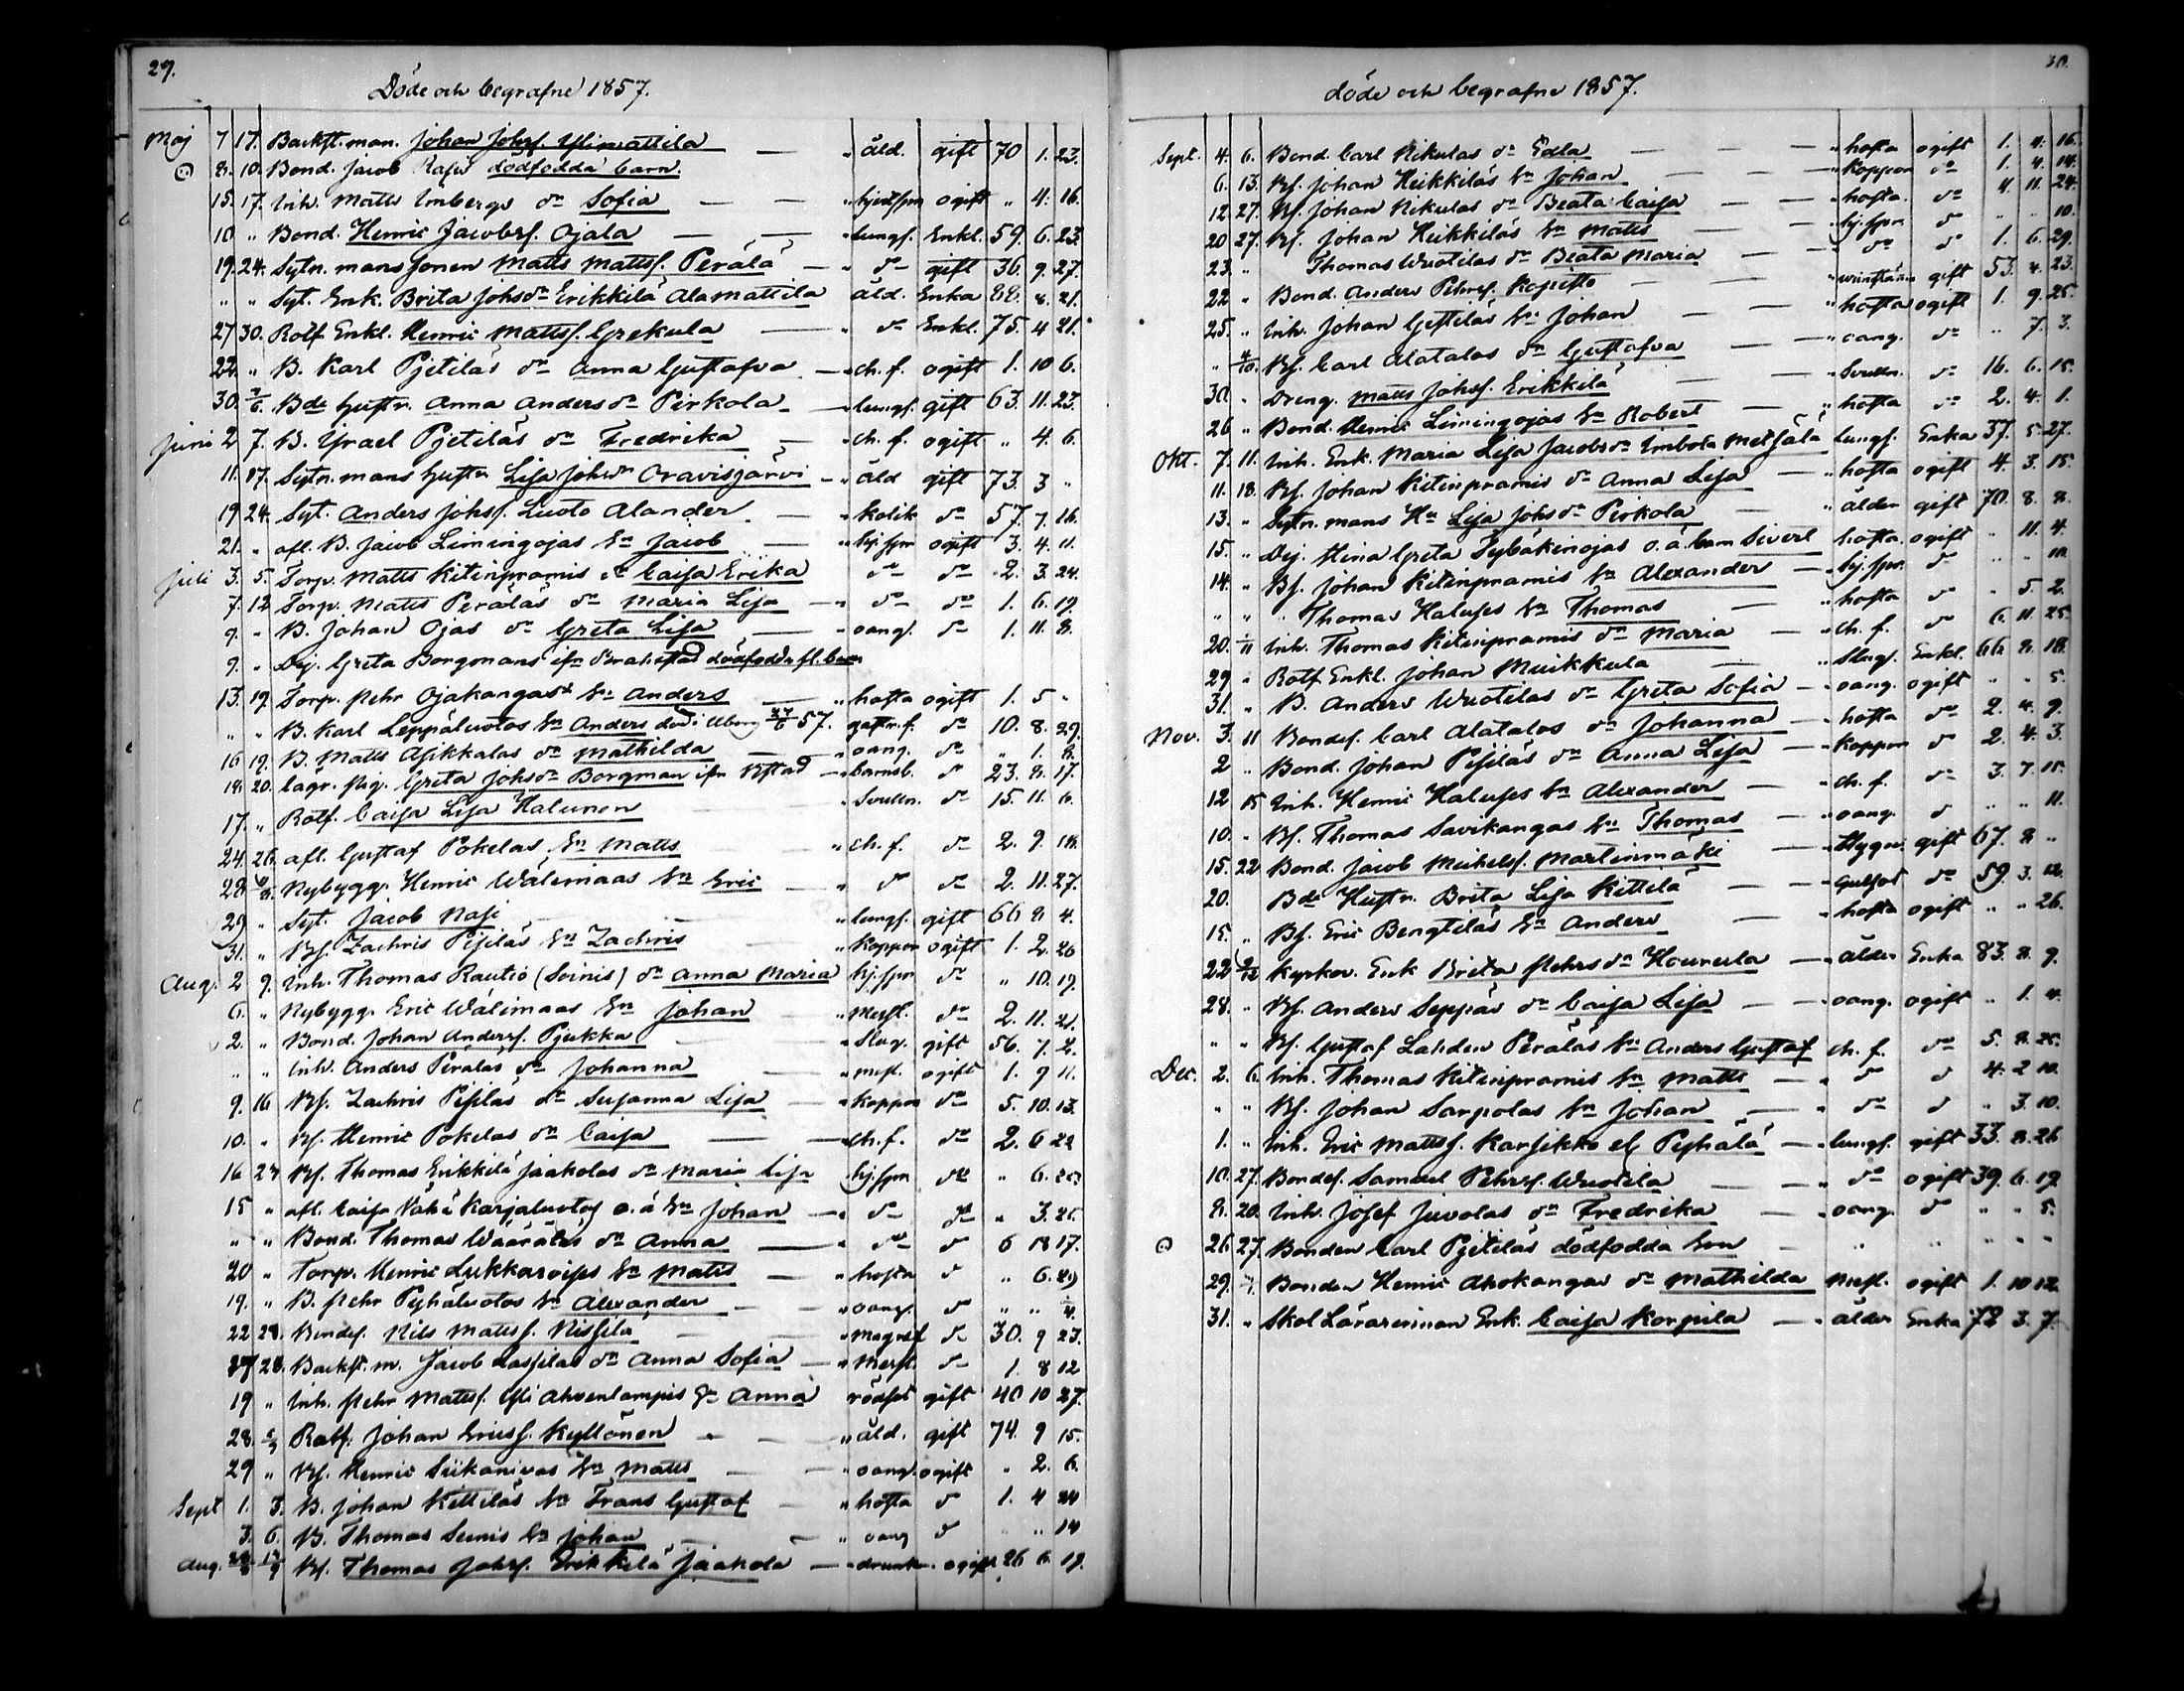 29.
Döde och begrafne 1857.
Maj 7 17. Backst. man. Johan Johsf. Ylimattila — " åld. gift 70 1. 23.
8. 10. Bond. Jacob dödfödda barn.
15. 17. Inh. Matts Imbergs dr Sofia — — " ogift " 4. 16.
10 " Bond. Henric Jacobsf. Ojala — — " lungs. Enkl. 59. 6. 23
19. 24. Sytn. mans sonen Matts Mattsf. Perälä — " do gift 36. 9. 27.
" " Syt. Enk. Brita Johsdr Erikkilä Alamattila åld. Enka 88. 8. 21.
27 30. Rotf Enkl. Henric Mattsf. Grekula — " do Enkl. 75. 4 21.
22. " B. Karl Pjetiläs dr Anna Gustafva — " ch. f. ogift 1. 10 6.
30. 7/6. Bde hustr. Anna Andersdr Pirkola — " lungs. gift 63. 11. 23.
Juni 2 7. B. Israel Pjetiläs dr Fredrika — " ch. f. ogift " 4. 6.
11. 17. Sytn. mans hustr Lisa Johsdr Oravisjärvi — " åld gift 73. 3 "
19 24. Syt. Anders Johsf. Luoto Alander — " Kolik do 57. 7. 16.
21. " afl. B. Jacob Limingojas Sn Jacob — " hj. spr ogift 3. 4. 11.
Juli 3. 5. Torp. Matts Kitinpramis dr Caisa Erika " do do 2. 3. 24.
7. 12 Torp. Matts Peräläs dr Maria Lisa — " do do 1. 6. 19.
9. " B. Johan Ojas dr Greta Lisa — " oang. do 1. 11. 8.
9. " Dej. Greta Borgmans ifrn Brahestad dödfödda fl. barn
13. 19. Torp. Pehr Ojakangas Sn Anders — " hosta ogift 1. 5 "
" " B. Karl Leppäluotos Sn Anders död i Uborg 57. gastr. f. do 10. 8. 29.
16 19. B. Matts Asikkalas dr Mathilda — " oang. do " 1. 8.
18. 20. Greta Johsdr Borgman ifrn Bstad — " barnsb. do 23. 8. 17.
17. " Rotf. Caisa Lisa Halunen — " Svulln. do 15. 11. 6.
24. 26. afl. Gustaf Pokelas Sn Matts " ch. f. do 2. 9. 18.
28. Nybygg. Henric Wälimaas Sn Eric — " do do 2. 11. 27.
29 " Syt. Jacob Nasi " lungs. gift 66 8 4.
31. " Bf. Zachris Pisiläs Sn Zachris " Koppor ogift 1. 2. 26
Aug. 2 9. Inh. Thomas Rautio (Soinis) dr Anna Maria hj. spr do " 10. 19.
6. " Nybygg. Eric Wälimaas Sn Johan — " Messl. do 2. 11. 21.
2. " Bond. Johan Andersf. Pjukka — " Slag. gift 56. 7. 2.
" " Inh. Anders Peräläs dr Johanna — " mesl. ogift 1. 9 11.
9. 16 Bf. Zachris Pisiläs dr Susanna Lisa — " Koppor do 5. 10. 13.
10. " Bf. Henric Pokelas dr Caisa — " ch. f. do 2. 6 22
16 23 Bf. Thomas Erikkilä Jaakolas dr Maria Lisa hj. spr do " 6.
15 " afl. Caisa Vähä Karjaluotos o. ä Sn Johan — " do do " 3. 25.
" " Bond. Thomas Wääräläs dr Anna — " do do 6 18 17.
20 " Torp. Henric Lukkaroises Sn Matts — " hosta do " 6. 29
19. " B. Pehr Pyhäluotos Sn Alexander — " oang. do " " 4.
22 23. Bondes. Nils Mattsf. Nissilä — " do 30. 9 23.
27 28. Backst. m. Jacob Lassilas dr Anna Sofia — " Messl. do 1. 8 12
19 " Inh. Pehr Mattsf. Yli Ahvenlampis Anna rödsot gift 40 10 27.
28. 6/9 Rotf. Johan Ericsf. Kyllönen — " åld. gift 74. 9 15.
29 " Bf. Henric Siikanivas Sn Matts — " oang. ogift " 2. 6.
Sept 1. 3. B. Johan Kettiläs Sn Frans Gustaf — " hosta do 1. 4 24
3. 6. B. Thomas Seinis Sn Johan — " oang do " " 14
Aug. Bf. Thomas Johsf. Erikkilä Jaakola — " drunkn. ogift 26 6. 19.
30.
döde och begrafne 1857.
Sept. 4. 6. Bond. Carl Nikulas dr Edla — " hosta ogift 1. 4. 16.
6. 13. Bf. Johan Heikkiläs Sn Johan — " Koppor do 1. 4. 14.
12 27. Bf. Johan Nikulas dr Beata Caisa — " hosta. do 4. 11. 24.
20 27. Bf. Johan Heikkiläs Sn Matts — " hj. spr. do " " 10.
23. " Thomas Wuotilas dr Beata Maria — " do do 1. 6. 29.
22 " Bond. Anders Pehrsf. Kopisto — " gift 53. 4. 23.
25. " Inh. Johan Gestiläs Sn Johan — " hosta ogift 1. 9. 25.
" 4/10. Bf. Carl Alatalos dr Gustafva — " oang. do " 7. 3.
30. " Dreng. Matts Johsf. Erikkilä — " Svulln. do 16. 6. 15.
26 " Bond. Henric Limingojas Sn Robert — " hosta do 2. 4. 1.
Okt. 7. 11. Inh. Enk. Maria Lisa Jacobsdr Imbola Metsälä lungs. Enka 37. 5. 27.
11. 18. Bf. Johan Kitinpramis dr Anna Lisa — " hosta ogift 4. 3. 15.
13. " Sytn. mans Hu Lisa Johsdr Pirkola — " ålder gift 70. 8. 8.
15. " Dej. Stina Greta Sybäkinojas o. ä barn Sivert hosta. ogift " 11. 4.
14. " Bf. Johan Kitinpramis Sn Alexander — " hj. spr. do " " 10.
" " " Thomas Haluses Sn Thomas — " hosta do " 5. 2.
20. 1/11 Inh. Thomas Kitinpramis dr Maria — " ch. f. do 6. 11. 25.
29 " Rotf Enkl. Johan Muikkula — " Slag. Enkl. 66 8. 18.
31. " B. Anders Wuotilas dr Greta Sofia — " oang. ogift " " 5.
Nov. 3. 11 Bondes. Carl Alatalos dr Johanna — " hosta do 2. 4. 9.
2 " Bond. Johan Pisiläs dr Anna Lisa — " Koppor do 2. 4. 3.
12 15 Inh. Henric Haluses Sn Alexander — " ch. f. do 3. 7. 15.
10. " Bf. Thomas Savikangas Sn Thomas — " oang. do " " 11.
15. 22 Bond. Jacob Michelsf. Martinmäki — " gift 67. 8 "
20. Bde Hustr. Brita Lisa Kittilä — " Gulsot do 59. 3. 12.
15. " Bf. Eric Bengtiläs Sn Anders — " hosta ogift " " 26.
22 Kyrkov. Enk Brita Pehrsdr Hourula — " ålder Enka 83. 8. 9.
28. " Bf. Anders Seppäs dr Caisa Lisa — " oang. ogift " 1. 4.
" " Bf. Gustaf Lahden Peräläs Sn Anders Gustaf ch. f. do 5. 8. 25.
Dec. 2. 6. Inh. Thomas Kitinpramis Sn Matts — " do do 4. 2 10.
" " Bf. Johan Sarpolas Sn Johan — " do do " 3. 10.
1. " Inh. Eric Mattsf. Karsikko el Pyhälä — " lungs. gift 33. 8. 26
10. 27. Bondes. Samuel Pehrsf. Wuotila — " do ogift 39. 6. 19
8. 20. Inh. Josef Juvolas dr Fredrika — " oang. do " " 5.
26 27. Bonden Carl Pjetiläs dödfödda Son — " " " " "
29. " Bonden Henric Ahokangas dr Mathilda Messl. ogift 1. 10 12.
31. " Skol Lärarinnan Enk. Caisa Korpila — " ålder Enka 72 3. 7.